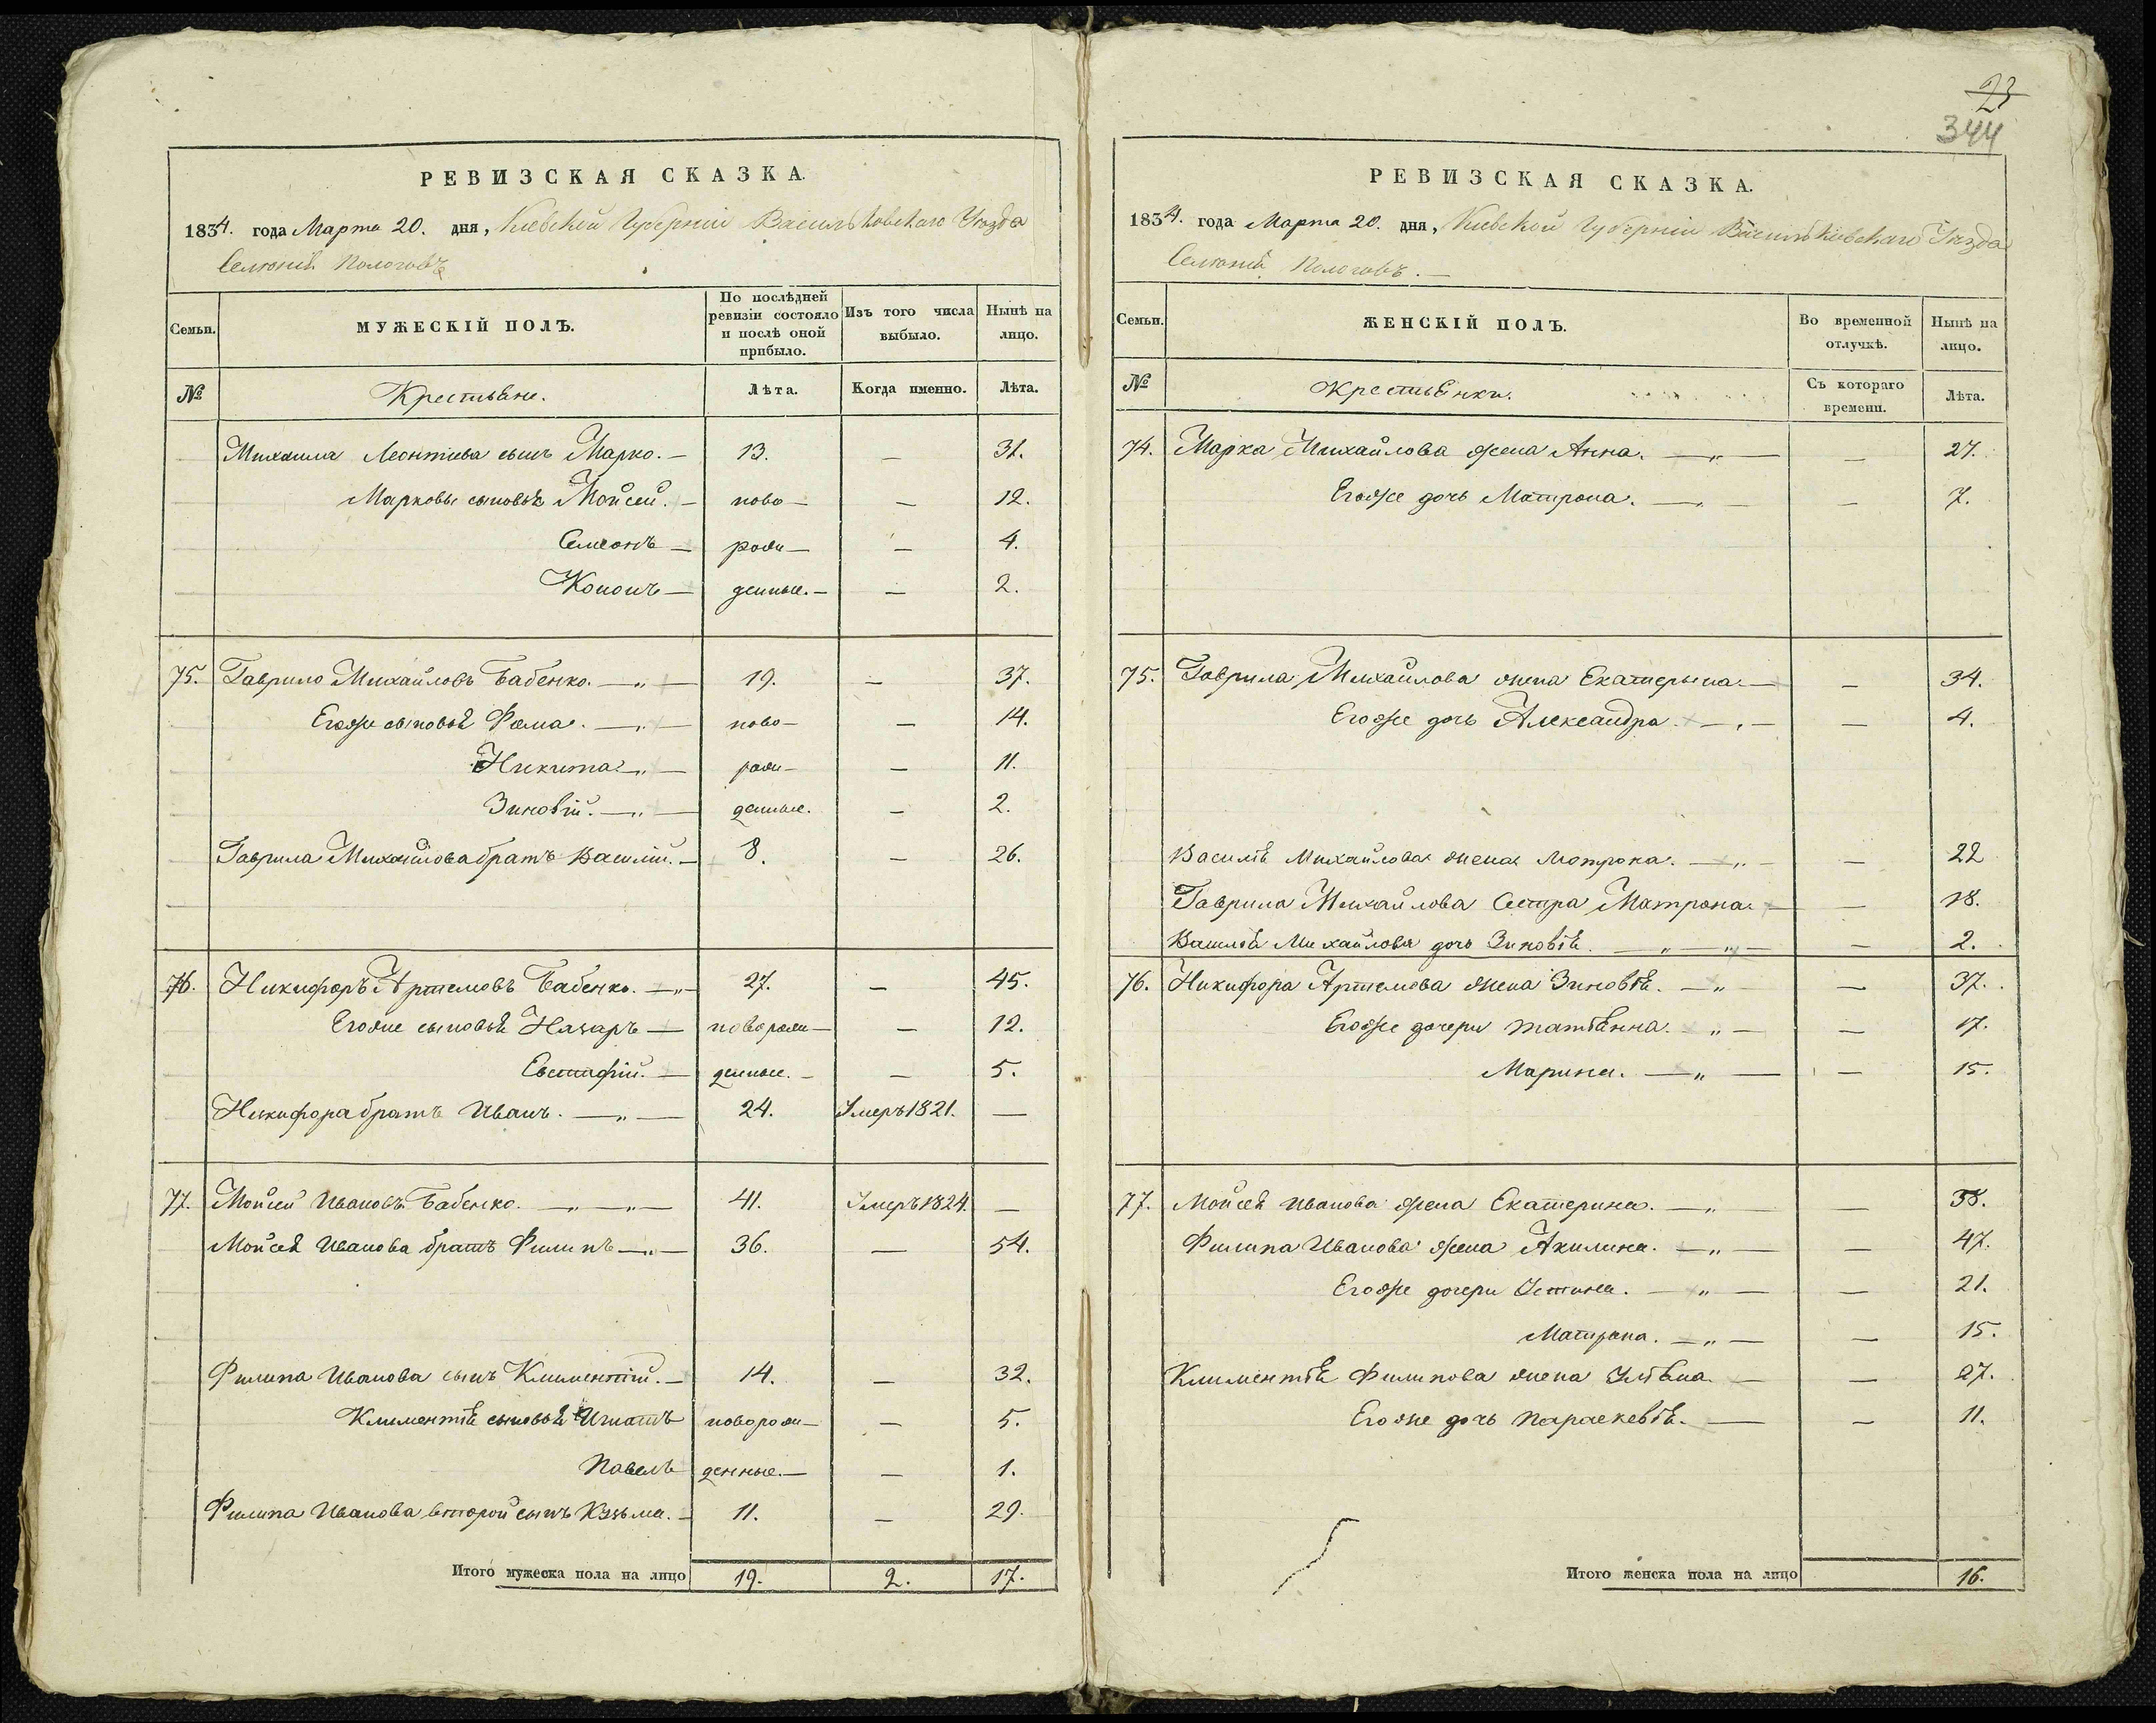 РЕВИЗСКАЯ СКАЗКА.
1834. года Марта 20. дня, Киевской Губерніи Васильковскаго Уѣзда
Селенія Пологовъ
Семьи.
МУЖЕСКІЙ ПОЛЪ.
По послѣдней ревизіи состояло и послѣ оной прибыло.
Изъ того числа выбыло.
Нынѣ на лицо.
№ Крестьяне. Лѣта. Когда именно. Лѣта.
Михаила Леонтіева сынъ Марко. — 13. — 31.
Марковы сыновья Мойсей. — ново — — 12.
Семенъ — рож — — 4.
Кононъ — денные. — — 2.
75. Гаврило Михайловъ Бабенко. — 19. — 37.
Егоже сыновья Фома. — ново — — 14.
Никита — рож — — 11.
Зиновій. — денные. — 2.
Гаврила Михайлова братъ Василій. — 8. — 26.
76. Никифоръ Артемовъ Бабенко. — 27. — 45.
Егоже сыновья Назаръ — новорож — — 12.
Евстафій. — денные. — — 5.
Никифора братъ Иванъ. — 24. Умеръ 1821. —
77. Мойсей Ивановъ Бабенко. — 41. Умеръ 1824. —
Мойсея Иванова братъ Филипъ — 36. — 54.
Филипа Иванова сынъ Климентій. — 14. — 32.
Климентія сыновья Игнатъ новорож — — 5.
Павелъ денные. — — 1.
Филипа Иванова второй сынъ Кузьма. — 11. — 29.
Итого мужеска пола на лицо 19. 2. 17.
23
344
РЕВИЗСКАЯ СКАЗКА.
1834. года Марта 20. дня, Киевской Губерніи Васильковскаго Уѣзда
Селенія Пологовъ. —
Семьи.
ЖЕНСКІЙ ПОЛЪ.
Во временной отлучкѣ.
Нынѣ на лицо.
№ Крестьянки. Съ котораго времени. Лѣта.
74. Марка Михайлова жена Анна. — — 27.
Егоже дочь Матрона. — — 7.
75. Гаврила Михайлова жена Екатерына — — 34.
Егоже дочь Александра. — — 4.
Василія Михайлова жена Мотрона. — — 22
Гаврила Михайлова Сестра Матрона — — 18.
Василія Михайлова дочь Зиновія. — — 2.
76. Никифора Артемова жена Зиновія. — — 37.
Егоже дочери Татіянна. — — 17.
Марина. — — 15.
77. Мойсея Иванова жена Екатерина. — — 38.
Филипа Иванова жена Акилина. — — 47.
Егоже дочери Устина. — — 21.
Матрона. — — 15.
Климентія Филипова жена Уліяна — — 27.
Егоже дочь Параскевія. — — 11.
Итого женска пола на лицо 16.